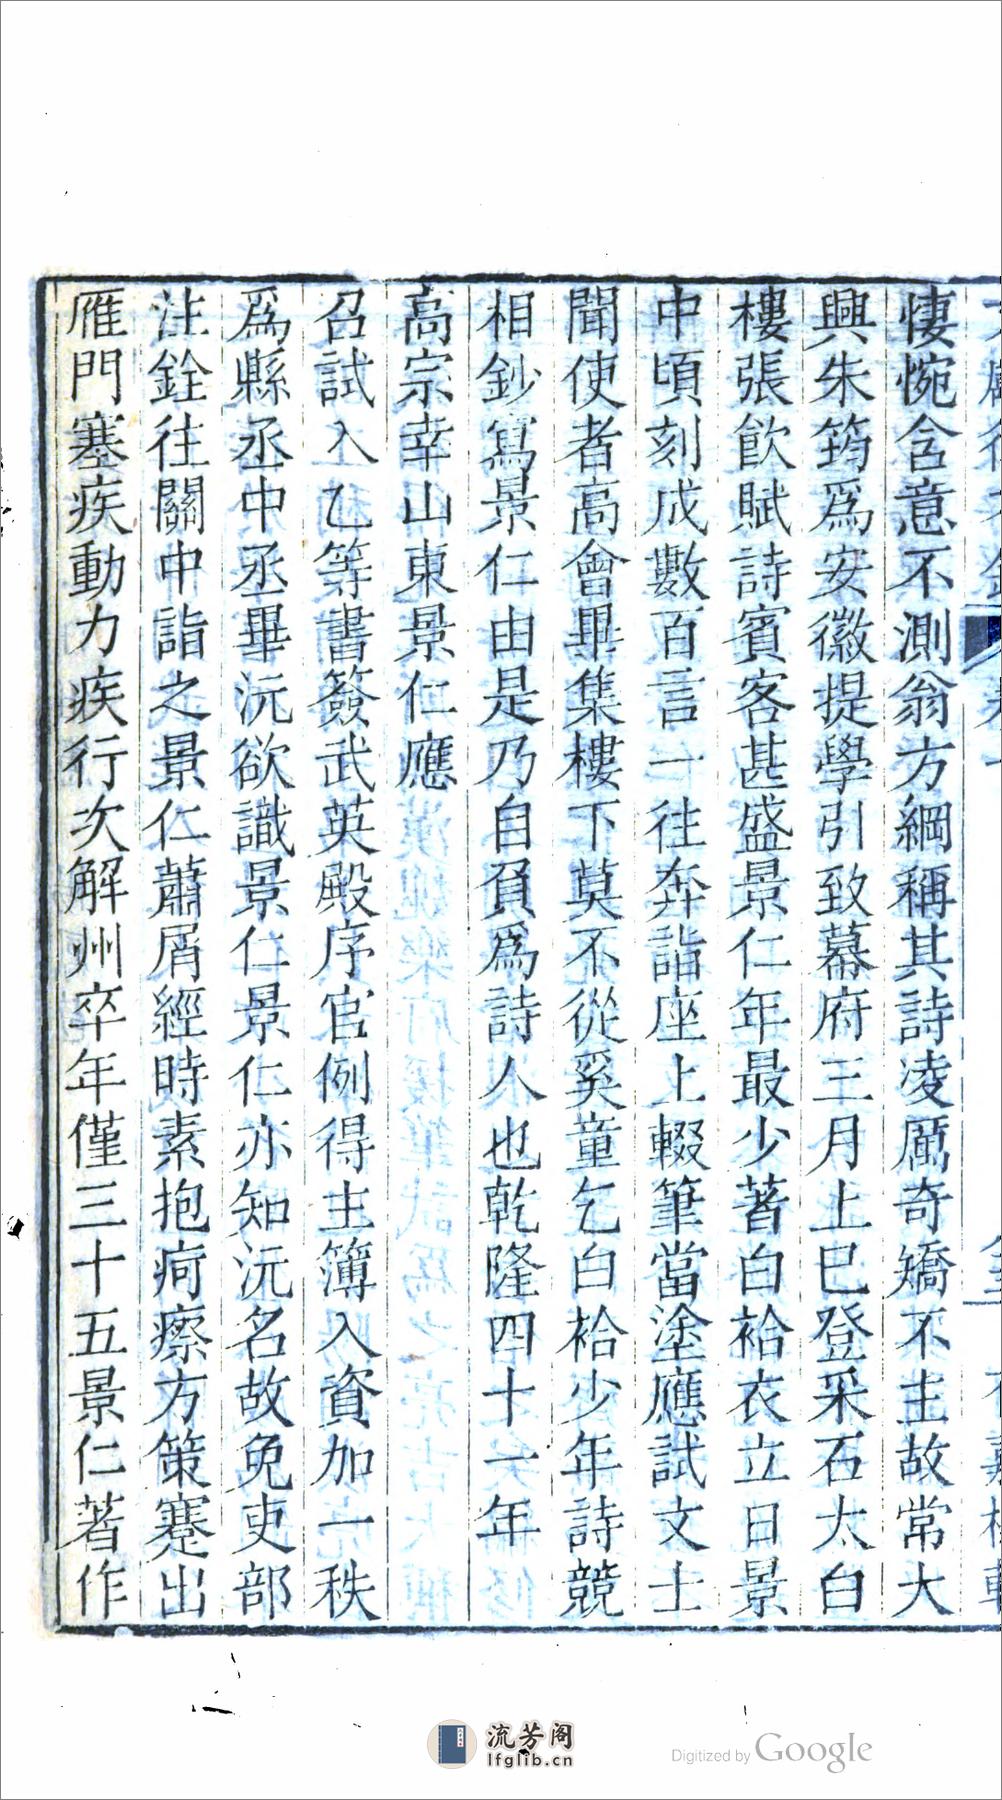 悽惋含意不測翁方綱稱其詩凌厲奇矯不主故常大
興朱筠爲安徽提學引致幕府三月上巳登采石太白
樓張飮賦詩賓客甚盛景仁年最少著白袷衣立日景
中頃刻成數百言一往奔詣座上輟筆當塗應試文士
聞使者高會畢集樓下莫不從奚童乞白袷少年詩競
相鈔寫景仁由是乃自負爲詩人也乾隆四十一年
高宗幸山東景仁應
召試入乙等書簽武英殿序官例得主簿入資加一秩
爲縣丞中丞畢沅欲識景仁景仁亦知沅名故免吏部
注銓往關中詣之景仁蕭屑經時素抱疴瘵方策蹇出
雁門塞疾動力疾行次解州卒年僅三十五景仁著作
流芳阁
lfglib.cn
Digitized by Google